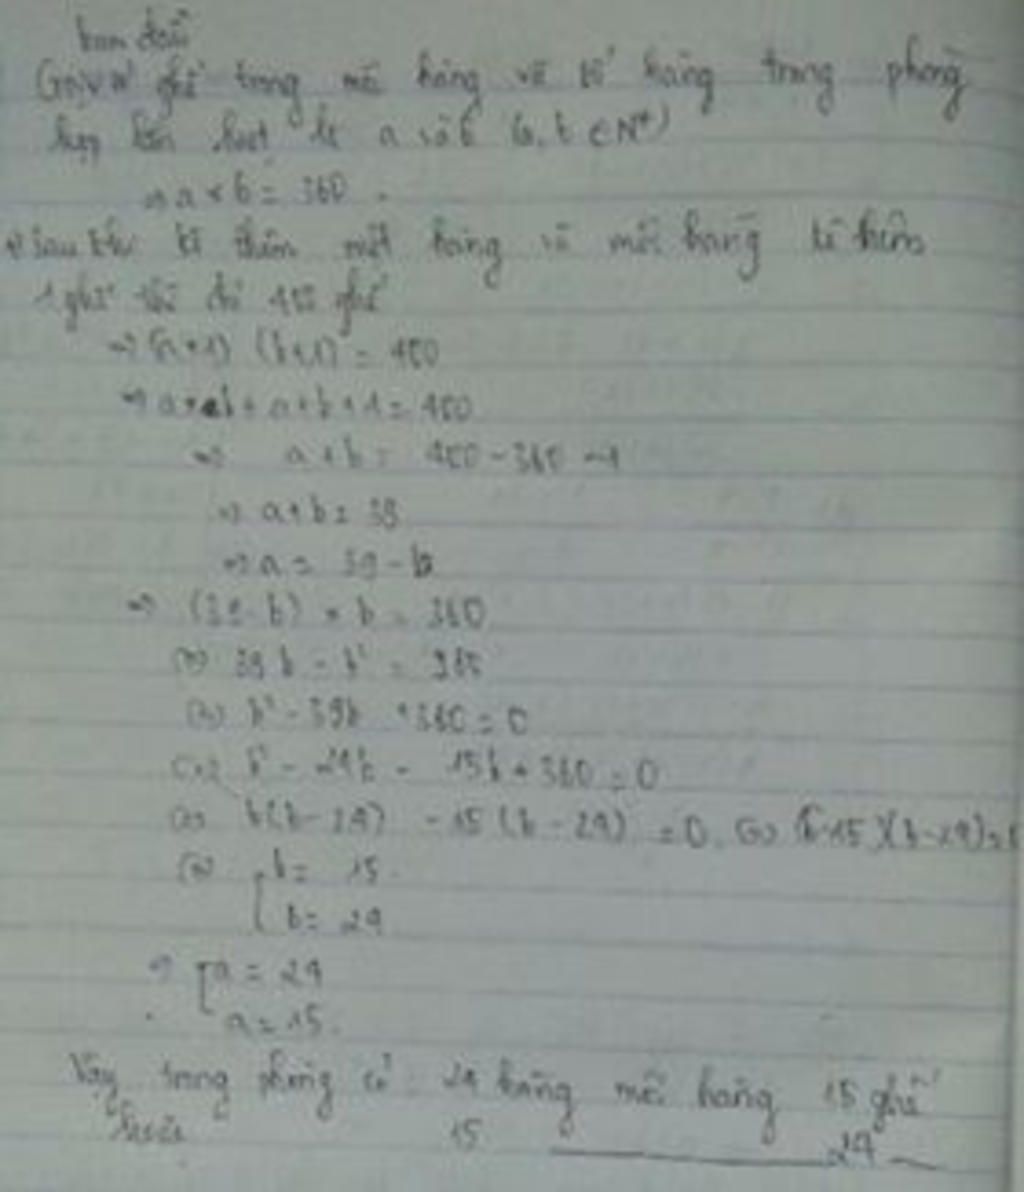 ban đầu
Gọi số ghế trong mỗi hàng và số hàng trong phòng
họp lần lượt là a và b (a, b ∈ N*)
⇒ a × b = 360
Sau khi kê thêm một hàng và mỗi hàng kê thêm
1 ghế thì đủ 400 ghế
⇒ (a + 1) (b + 1) = 400
⇒ ab + a + b + 1 = 400
⇒ a + b = 400 - 360 - 1
⇒ a + b = 39
⇒ a = 39 - b
⇒ (39 - b) × b = 360
⇔ 39b - b² = 360
⇔ b² - 39b + 360 = 0
⇔ b² - 24b - 15b + 360 = 0
⇔ b(b - 24) - 15(b - 24) = 0 ⇔ (b-15)(b-24)=0
⇔ [ b = 15
b = 24
⇒ [ a = 24
a = 15
Vậy trong phòng có 24 hàng mỗi hàng 15 ghế
hoặc 15 ——— 24 —